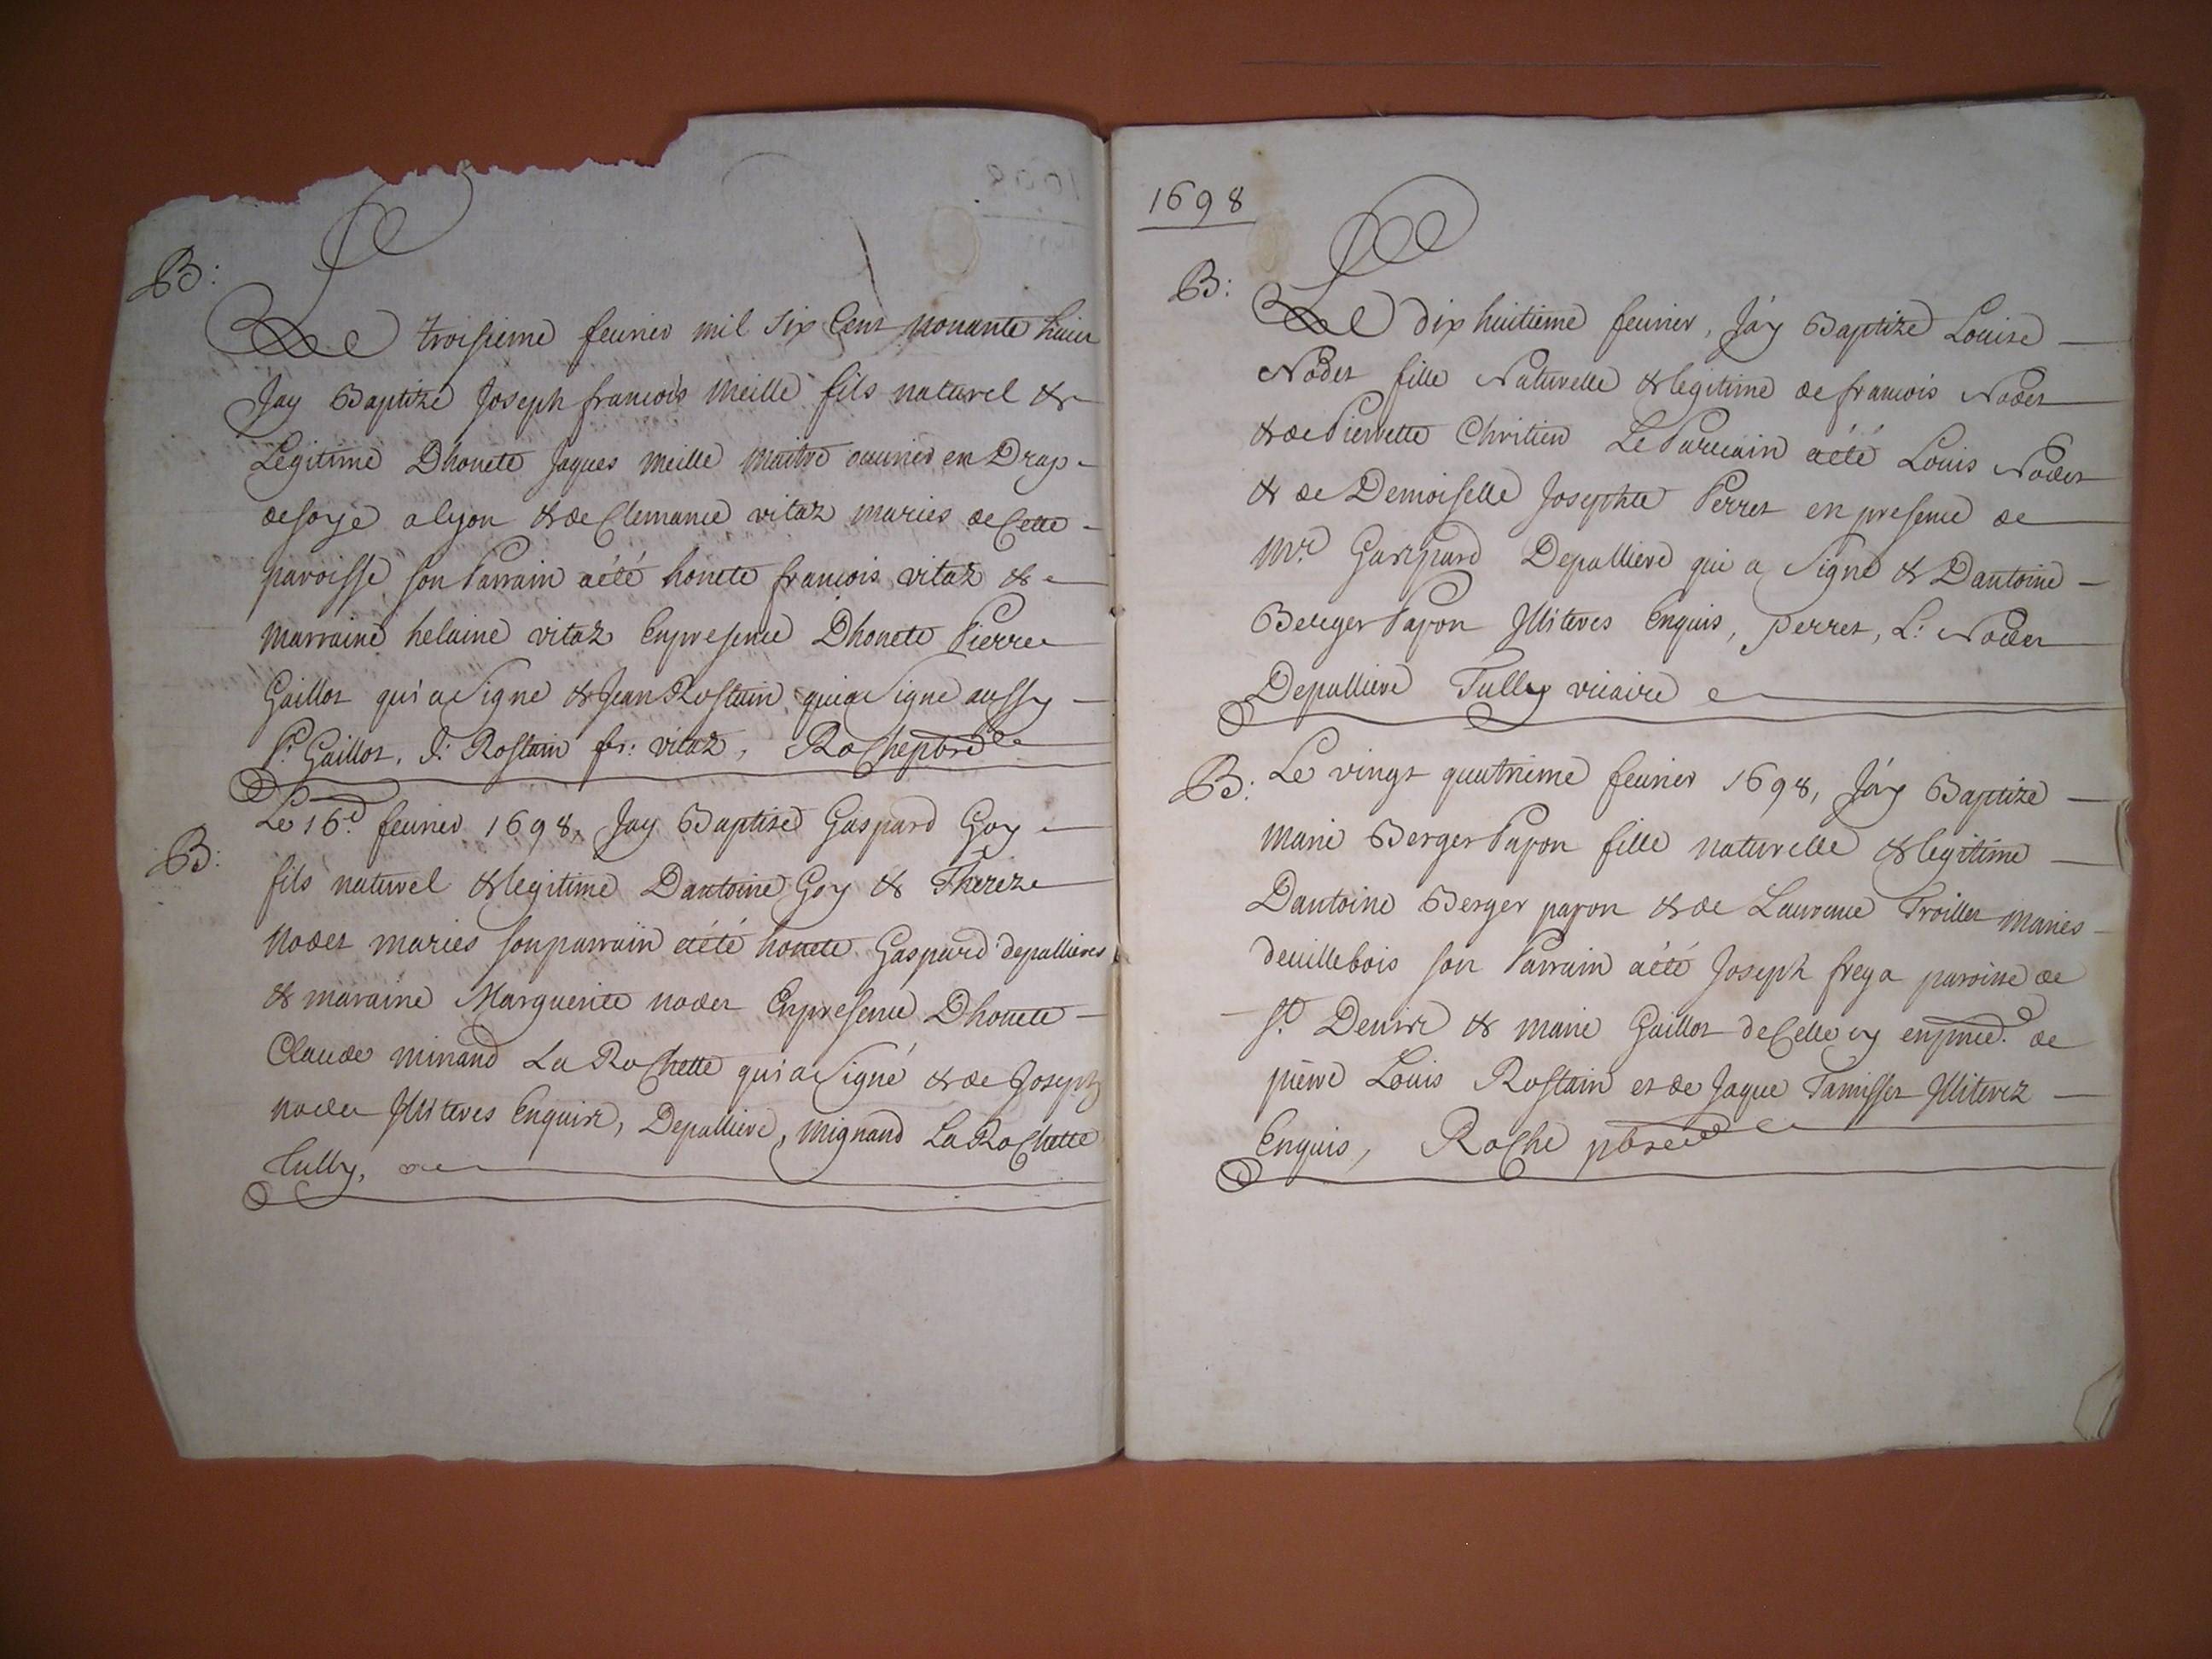 B:
Le troisieme feurier mil six Cent Nonante huict
Jay Baptizé Joseph francois Meille fils naturel &
Legitime Dhonete Jaques Meille Maitre ouurier en Drap
de soye a lyon & de Clemance vitaz mariés de Cette
paroisse son Parrain a été honete francois vitaz &
Marraine helaine vitaz En presence Dhonete Pierre
Gaillot qui a signe & Jean Rostain qui a signe aussy
P: Gaillot, J: Rostain fr: vitaz, Roche pbre
B:
Le 16e feurier 1698, Jay Baptisé Gaspard Goy
fils naturel & legitime Dantoine Goy & Thereze
Nodet mariés son parrain a été honete Gaspard depallieres
& maraine Marguerite nodet En presence Dhonete
Claude minand La Rochette qui a signé & de Joseph
nodet Jlliteres Enquis, Depalliere, mignand La Rochette
Tully,
1698
B:
Le dix huitieme feurier, J'ay Baptizé Louise
Nodet fille Naturelle & legitime de francois Nodet
& de Pierrette Chritien Le Parrain a été Louis Nodet
& de Demoiselle Josephte Perret en presence de
Mre Gaspard Depalliere qui a signé & Dantoine
Berger Papon Jlliteres Enquis, perret, L: Nodet
Depalliere Tully vicaire
B:
Le vingt quatrieme feurier 1698, J'ay Baptizé
Marie Berger Papon fille naturelle & legitime
Dantoine Berger papon & de Laurence Troillet Mariés
deuillebois son Parrain a été Joseph frega paroisse de
St. Denire & marie Gaillot de Celle cy en pnce. de
pierre Louis Rostain et de Jaque Tamisset Jlliterez
Enquis, Roche pbre